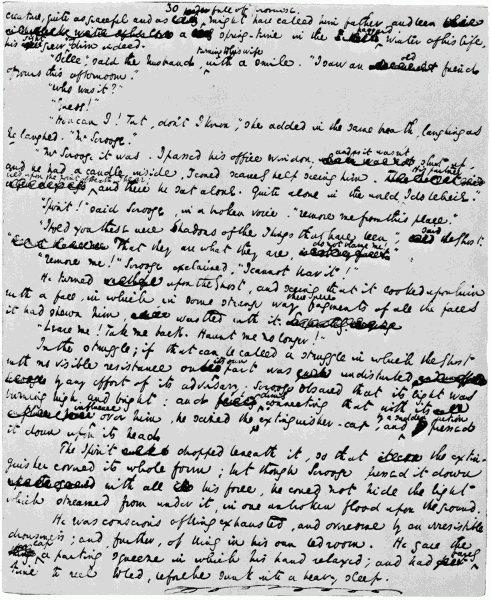 30
creature, quite as graceful and as full of promise, might have called him father, and been
a spring-time in the haggard winter of his life,
his sight grew dim indeed.
"Belle," said the husband, turning to his wife with a smile. "I saw an old friend
of yours this afternoon."
"Who was it?"
"Guess!"
"How can I! Tut, don't I know," she added in the same breath, laughing as
he laughed. "Mr Scrooge."
"Mr Scrooge it was. I passed his office window, and as it was not shut up,
and he had a candle inside, I could scarcely help seeing him. His partner
lies upon the point of death I hear and there he sat alone. Quite alone in the world, I do believe."
"Spirit!" said Scrooge, in a broken voice. "remove me from this place."
"I told you these were shadows of the things that have been," said the Ghost.
"That they are what they are, do not blame me!"
"Remove me!" Scrooge exclaimed. "I cannot bear it!"
He turned upon the Ghost, and seeing that it looked upon him
with a face, in which in some strange way there were fragments of all the faces
it had shewn him, wrestled with it.
"Leave me! Take me back. Haunt me no longer!"
In the struggle; if that can be called a struggle in which the Ghost
with no visible resistance on its own part was undisturbed
by any effort of its adversary; Scrooge observed that its light was
burning high and bright; and dimly connecting that with its
influence over him, he seized the extinguisher-cap, and by a sudden action pressed
it down upon its head.
The Spirit dropped beneath it, so that the extin-
guisher covered its whole form; but though Scrooge pressed it down
with all his force, he could not hide the light
which streamed from under it, in one unbroken flood upon the ground.
He was conscious of being exhausted, and overcome by an irresistible
drowsiness; and further, of being in his own bedroom. He gave the
cap a parting squeeze in which his hand relaxed; and had barely
time to reel to bed, before he sank into a heavy sleep.